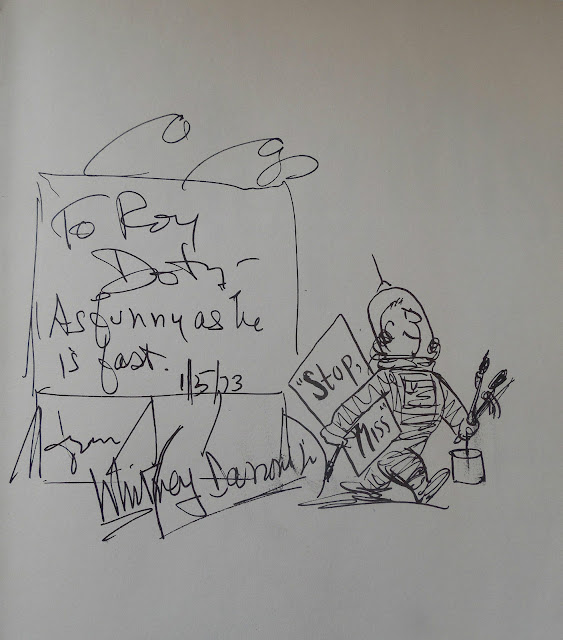 To Roy
Doty-
As funny as he
is fast.
1/5/73
from
Whitney Darrow Jr
"Stop,
Miss"